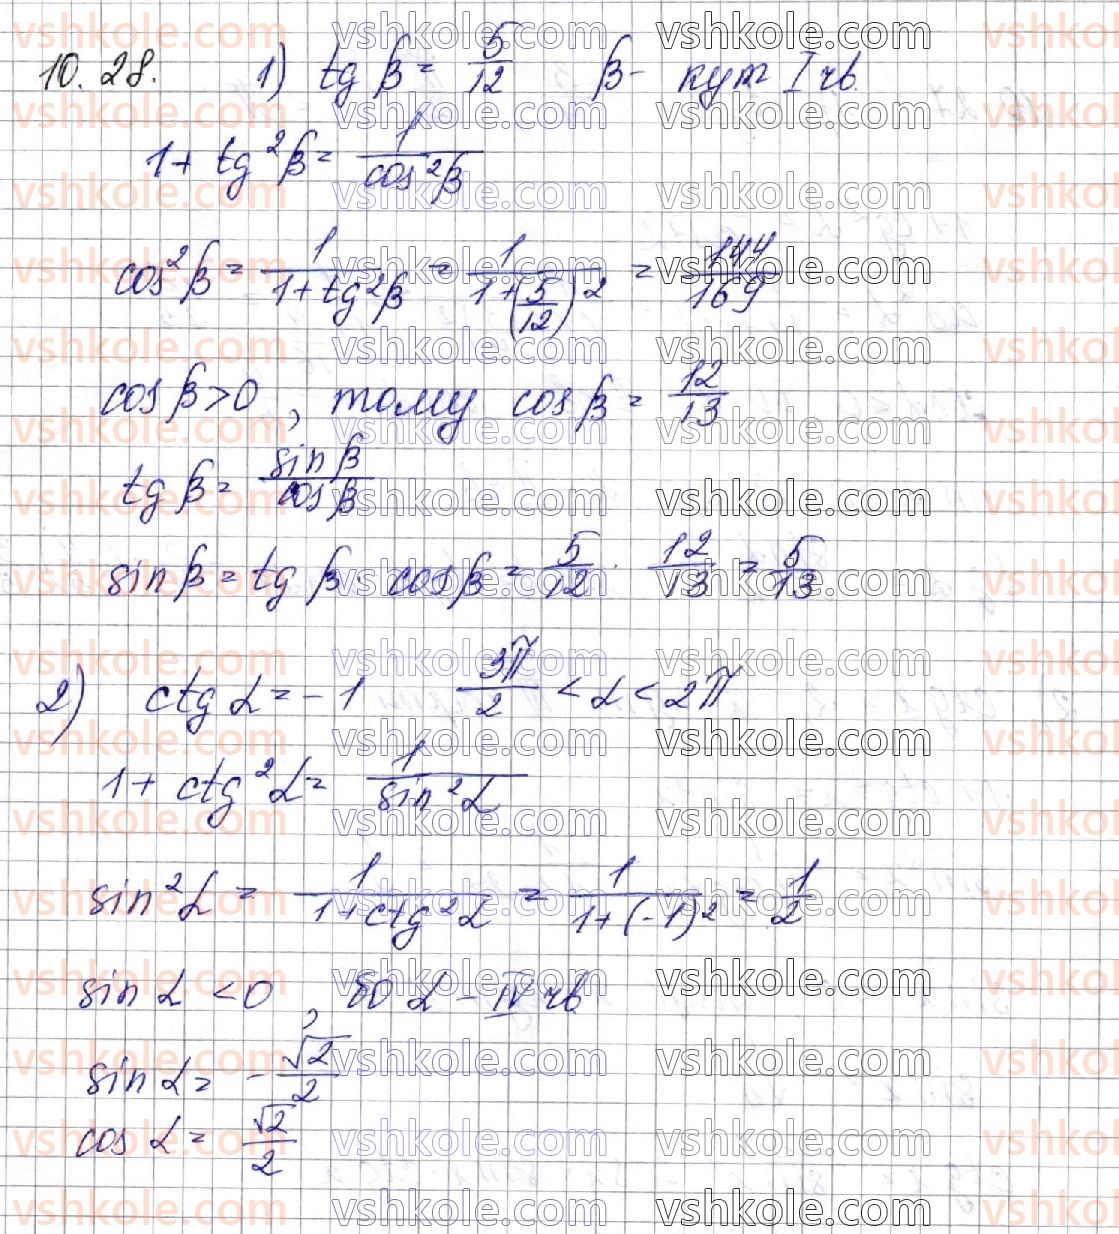 10.28. 1) tg β = 5/12 β - кут I чв.
1 + tg²β = 1/cos²β
cos²β = 1/(1 + tg²β) = 1/(1 + (5/12)²) = 144/169
cos β > 0, тому cos β = 12/13
tg β = sin β/cos β
sin β = tg β · cos β = 5/12 · 12/13 = 5/13
2) ctg α = -1 3π/2 < α < 2π
1 + ctg²α = 1/sin²α
sin²α = 1/(1 + ctg²α) = 1/(1 + (-1)²) = 1/2
sin α < 0, бо α - IV чв.
sin α = -√2/2
cos α = √2/2
vshkole.com